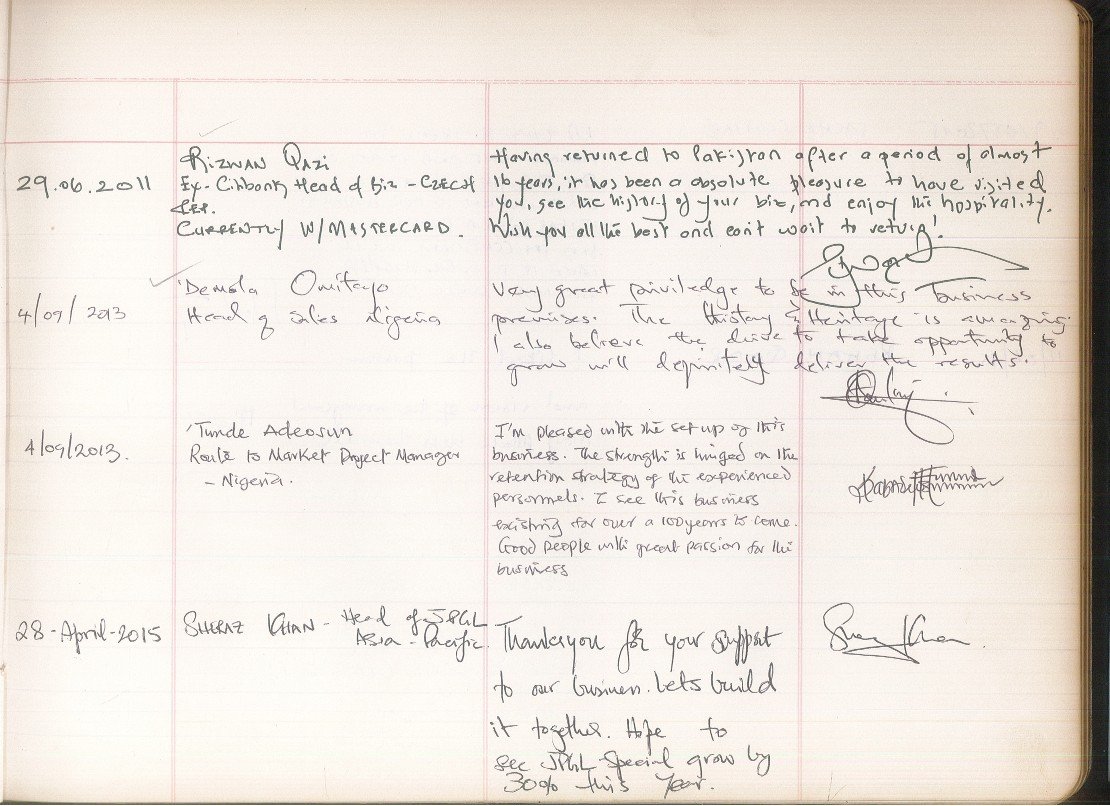 29.06.2011
RIZWAN QAZI
Ex- Citibank Head of Biz - CZECH
REP.
CURRENTLY W/ MASTERCARD.
Having returned to Pakistan after a period of almost
16 years, it has been a absolute pleasure to have visited
you, see the history of your biz, and enjoy the hospitality.
Wish you all the best and can't wait to return!
4/09/2013
'Demola Omitayo
Head of Sales Nigeria
Very great priviledge to be in this business
premises. The History & Heritage is amazing.
I also believe the drive to take opportunity to
grow will definitely deliver the results.
4/09/2013.
'Tunde Adeosun
Route to Market Project Manager
- Nigeria.
I'm pleased with the set up of this
business. The strength is hinged on the
retention strategy of the experienced
personnels. I see this business
existing for over a 100 years to come.
Good people with great passion for the
business
28-April-2015
SHERAZ KHAN - Head of JPGL
Asia - Pacific.
Thankyou for your support
to our business. Lets build
it together. Hope to
see JPGL Special grow by
30% this Year.